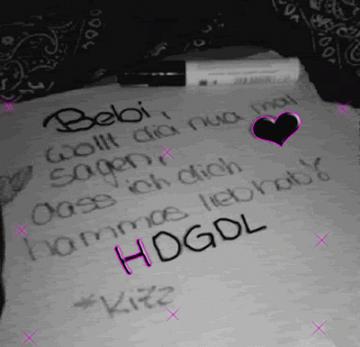 Bebi,
wollt dia nua mal
sagen,
dass ich dich
hammas lieb hab!
HDGDL
*Kitz